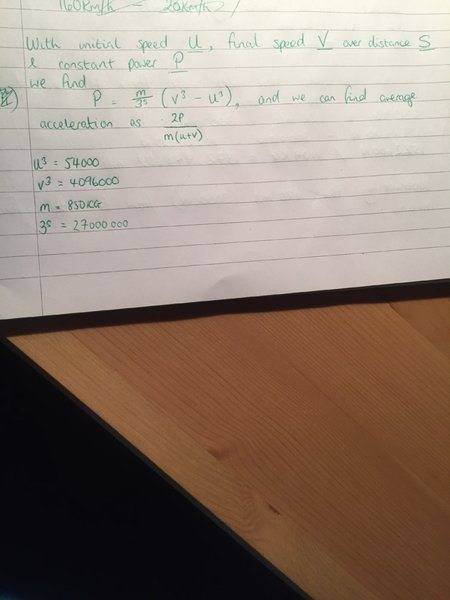 160Km/h — 20Km/h
With initial speed U, final speed V over distance S
& constant power P
we find
P = m/3s (v³ - u³), and we can find average
acceleration as 2P/m(u+v)
u³ = 54000
v³ = 4096000
m = 850KG
3s = 27000000